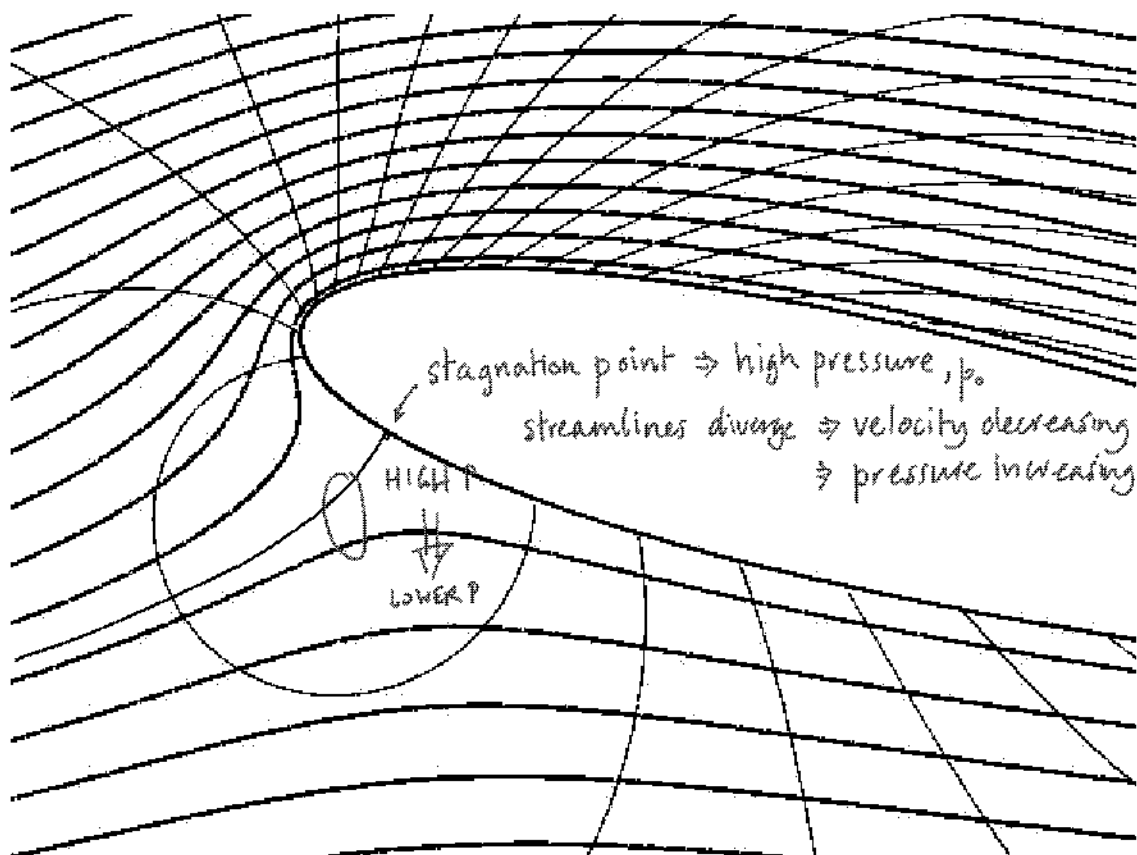 stagnation point ⇒ high pressure, p₀
streamlines diverge ⇒ velocity decreasing
⇒ pressure increasing
HIGH P
LOWER P